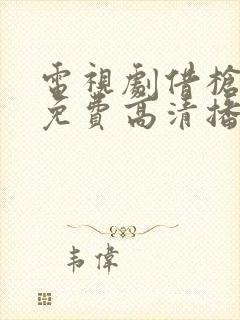 電視劇借槍
免費高清播
韦偉